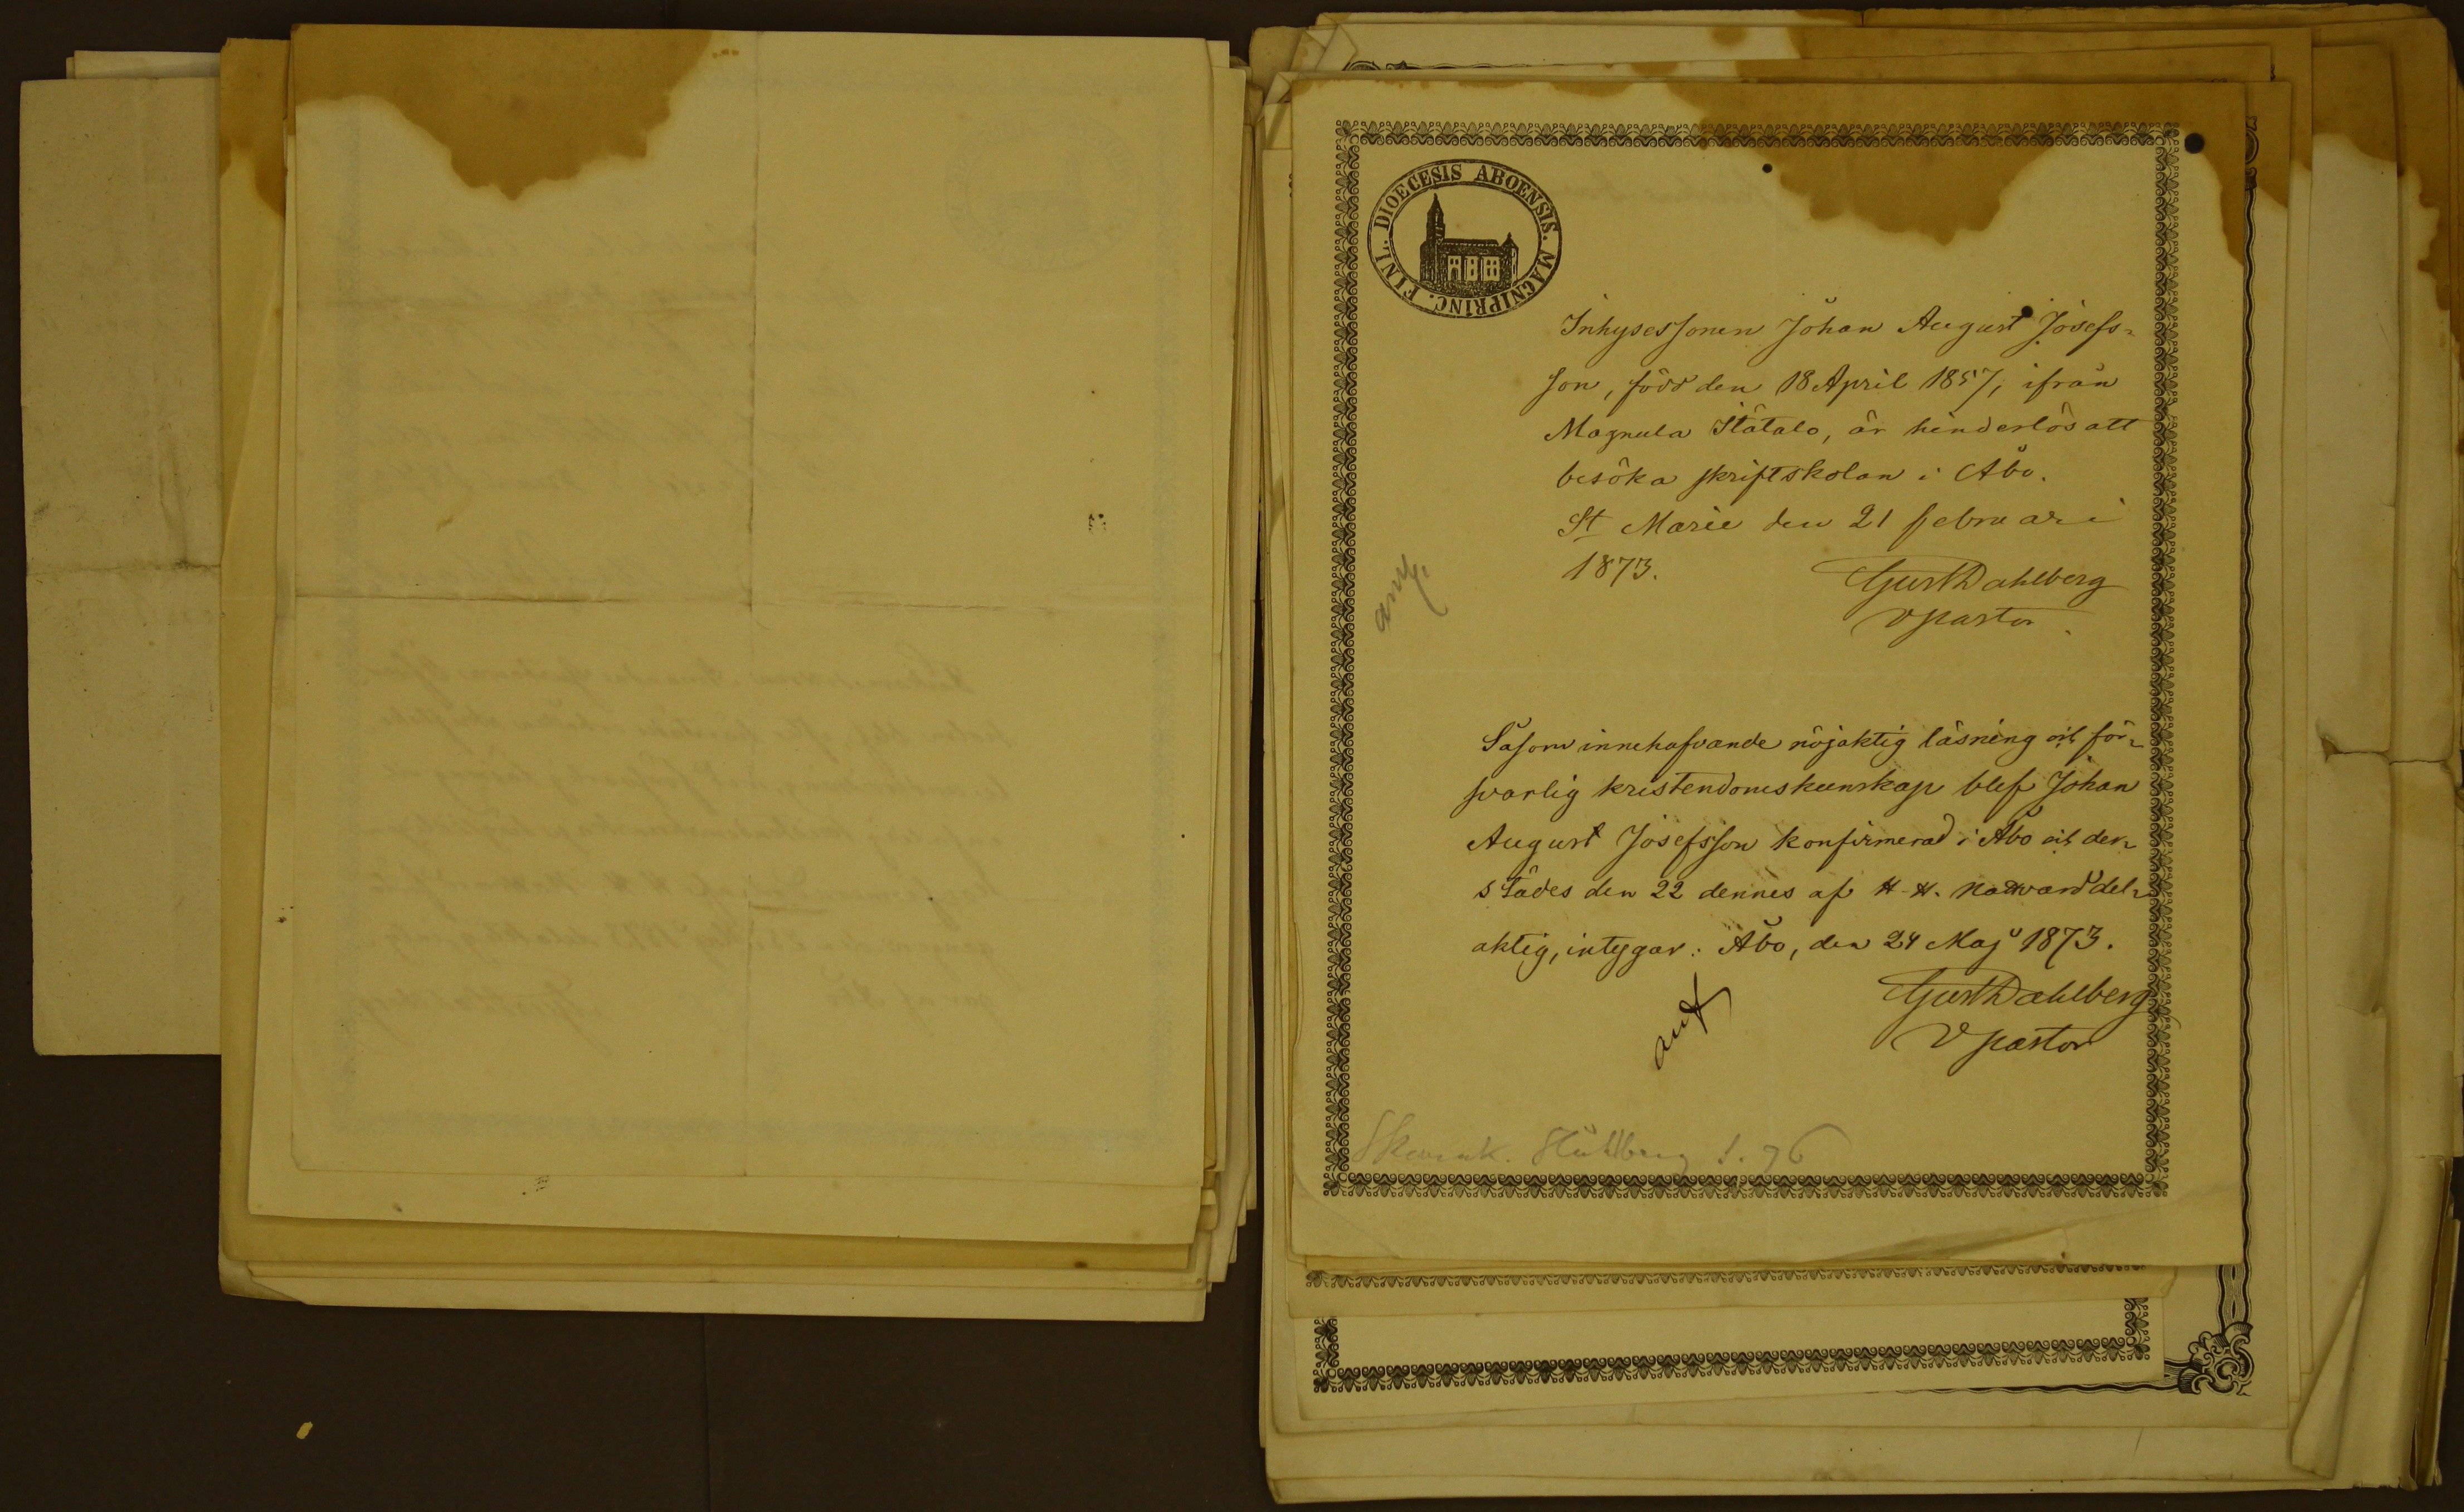 DIOECESIS ABOENSIS. MAGNIPRINC. FINL.
Inhysessonen Johan August Josefs-
son, född den 18 April 1857, ifrån
Magnula Itätalo, är hinderlös att
besöka skriftskolan i Åbo.
St Marie den 21 februari
1873.
Gust Dahlberg
V pastor.
Såsom innehafvande nöjaktig läsning och för-
svarlig kristendomskunskap blef Johan
August Josefsson konfirmerad i Åbo och der-
städes den 22 dennes af H. H. Nattvard del-
aktig, intygar: Åbo, den 24 Maj 1873.
Gust Dahlberg
V pastor